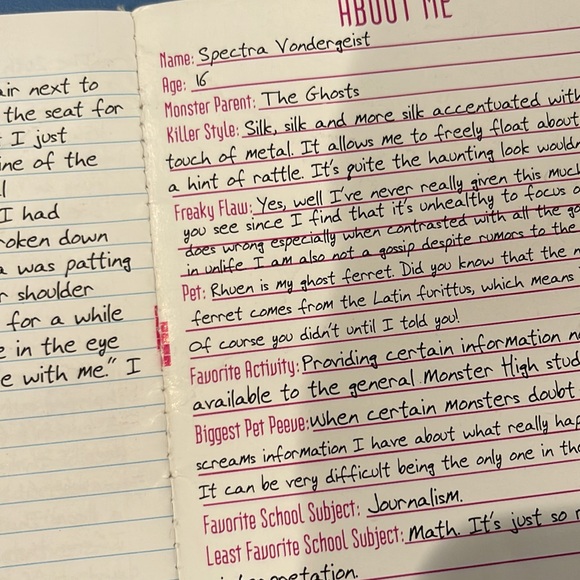 air next to
the seat for
I just
ine of the
I had
oken down
was patting
shoulder
for a while
in the eye
e with me." I
ABOUT ME
Name: Spectra Vondergeist
Age: 16
Monster Parent: The Ghosts
Killer Style: Silk, silk and more silk accentuated with
touch of metal. It allows me to freely float about
a hint of rattle. It's quite the haunting look
Freaky Flaw: Yes, well I've never really given this
you see since I find that it's unhealthy to focus
does wrong especially when contrasted with all the
in unlife. I am also not a gossip despite rumors to the
Pet: Rhuen is my ghost ferret. Did you know that the
ferret comes from the Latin furittus, which means
Of course you didn't until I told you!
Favorite Activity: Providing certain information
available to the general Monster High
Biggest Pet Peeve: When certain monsters doubt
screams information I have about what really
It can be very difficult being the only one in
Favorite School Subject: Journalism.
Least Favorite School Subject: Math. It's just so